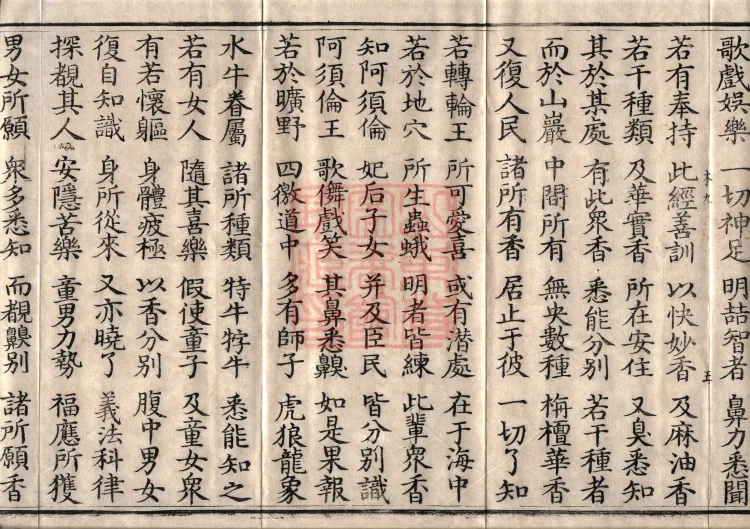 歌戲娛樂 一切神足 明喆智者 鼻力悉聞
若有奉持 此經善訓 以快妙香 及麻油香
若干種類 及華實香 所在安住 又臭悉知
其於某處 有此眾香 悉能分別 若干種者
而於山巖 中間所有 無央數種 栴檀華香
又復人民 諸所有香 居止于彼 一切了知
若轉輪王 所可愛喜 或有潛處 在于海中
若於地穴 所生蟲蛾 明者皆練 此輩眾香
知阿須倫 妃后子女 并及臣民 皆分別識
阿須倫王 歌儛戲笑 其鼻悉齅 如是果報
若於曠野 四徼道中 多有師子 虎狼龍象
水牛眷屬 諸所種類 特牛牸牛 悉能知之
若有女人 隨其喜樂 假使童子 及童女眾
有若懷軀 身體疲極 以香分別 腹中男女
復自知識 身所從來 又亦曉了 義法科律
探覩其人 安隱苦樂 童男力勢 福應所獲
男女所願 眾多悉知 而覩齅別 諸所願香